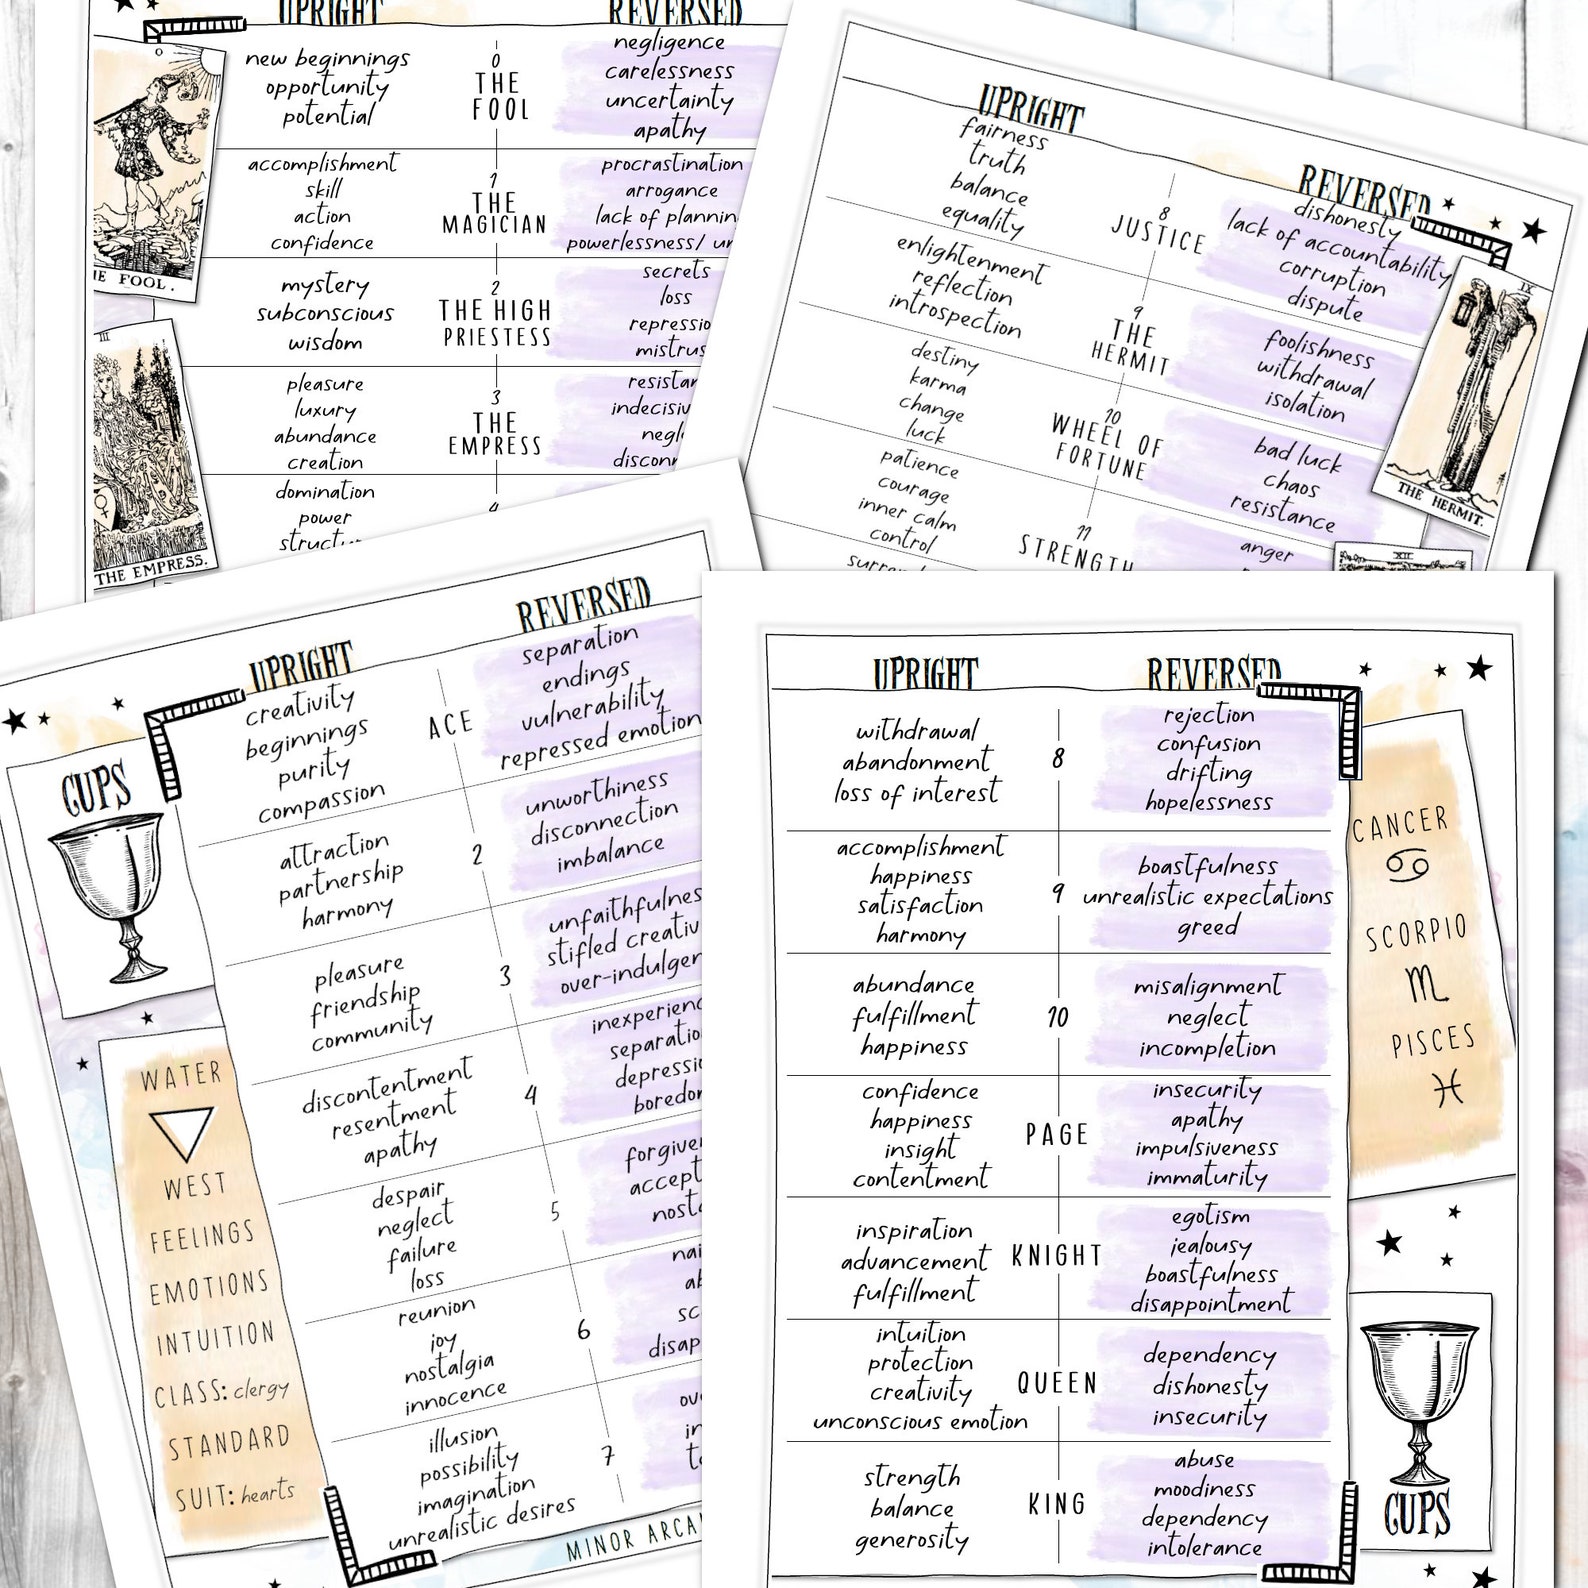 UPRIGHT
REVERSED
0
THE FOOL.
new beginnings
opportunity
potential
0
THE
FOOL
negligence
carelessness
uncertainty
apathy
accomplishment
skill
action
confidence
1
THE
MAGICIAN
procrastination
arrogance
lack of
powerlessness/
mystery
subconscious
wisdom
2
THE HIGH
PRIESTESS
secrets
loss
III
THE EMPRESS.
pleasure
luxury
abundance
creation
3
THE
EMPRESS
domination
power
4
UPRIGHT
REVERSED
fairness
truth
balance
equality
8
JUSTICE
dishonesty
lack of accountability
corruption
dispute
enlightenment
reflection
introspection
9
THE
HERMIT
foolishness
withdrawal
isolation
IX
THE HERMIT.
destiny
karma
change
luck
10
WHEEL OF
FORTUNE
bad luck
chaos
resistance
patience
courage
inner calm
control
11
STRENGTH
anger
XII
UPRIGHT
REVERSED
CUPS
creativity
beginnings
purity
compassion
ACE
separation
endings
vulnerability
repressed emotion
attraction
partnership
harmony
2
unworthiness
disconnection
imbalance
pleasure
friendship
community
3
stifled
discontentment
resentment
apathy
4
despair
neglect
failure
loss
5
reunion
joy
nostalgia
innocence
6
illusion
possibility
imagination
unrealistic desires
7
WATER
WEST
FEELINGS
EMOTIONS
INTUITION
CLASS: clergy
STANDARD
SUIT: hearts
MINOR
UPRIGHT
REVERSED
withdrawal
abandonment
loss of interest
8
rejection
confusion
drifting
hopelessness
accomplishment
happiness
satisfaction
harmony
9
boastfulness
unrealistic expectations
greed
abundance
fulfillment
happiness
10
misalignment
neglect
incompletion
confidence
happiness
insight
contentment
PAGE
insecurity
apathy
impulsiveness
immaturity
inspiration
advancement
fulfillment
KNIGHT
egotism
jealousy
boastfulness
disappointment
intuition
protection
creativity
unconscious emotion
QUEEN
dependency
dishonesty
insecurity
strength
balance
generosity
KING
abuse
moodiness
dependency
intolerance
CANCER
♋
SCORPIO
♏
PISCES
♓
CUPS